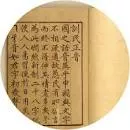 訓民正音
國之語音異乎中國與文字
不相流通故愚民有所欲言
而終不得伸其情者多矣予
爲此憫然新制二十八字
使人人易習便
牙音如君字初